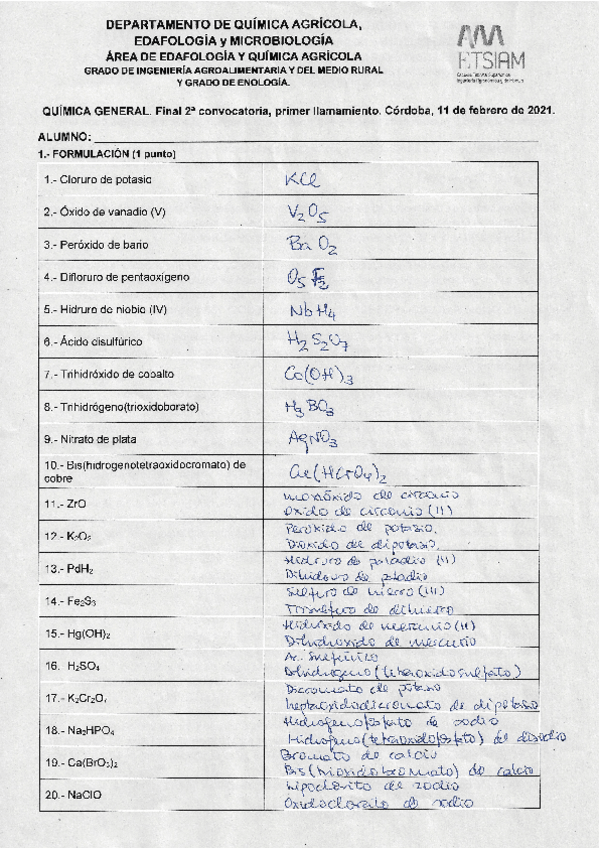 DEPARTAMENTO DE QUÍMICA AGRÍCOLA,
EDAFOLOGÍA y MICROBIOLOGÍA
ÁREA DE EDAFOLOGÍA Y QUÍMICA AGRÍCOLA
GRADO DE INGENIERÍA AGROALIMENTARIA Y DEL MEDIO RURAL
Y GRADO DE ENOLOGÍA.
ETSIAM
QUÍMICA GENERAL. Final 2ª convocatoria, primer llamamiento. Córdoba, 11 de febrero de 2021.
ALUMNO:
1.- FORMULACIÓN (1 punto)
1.- Cloruro de potasio KCl
2.- Óxido de vanadio (V) V₂O₅
3.- Peróxido de bario BaO₂
4.- Difloruro de pentaoxígeno O₅F₂
5.- Hidruro de niobio (IV) NbH₄
6.- Ácido disulfúrico H₂S₂O₇
7.- Trihidróxido de cobalto Co(OH)₃
8.- Trihidrógeno(trioxidoborato) H₃BO₃
9.- Nitrato de plata AgNO₃
10.- Bis(hidrogenotetraoxidocromato) de
cobre (HCrO₄)₂
11.- ZrO monóxido de circonio
Óxido de circonio (II)
12.- K₂O₂ Peróxido de potasio.
Dióxido de dipotasio.
13.- PdH₂ Hidruro de paladio (II)
Dihidruro de paladio
14.- Fe₂S₃ Sulfuro de hierro (III)
Trisulfuro de dihierro
15.- Hg(OH)₂ Hidróxido de mercurio (II)
Dihidróxido de mercurio
16. H₂SO₄ Ac. Sulfúrico
Dihidrogeno (tetraoxidosulfato)
17.- K₂Cr₂O₇ Dicromato de potasio
heptaoxidodicromato de dipotasio
18.- Na₂HPO₄ Hidrogenofosfato de sodio
Hidrogeno(tetraoxidofosfato) de disodio
19.- Ca(BrO₃)₂ Bromato de calcio
Bis(trioxidobromato) de calcio
20.- NaClO hipoclorito de sodio
Oxidoclorato de sodio